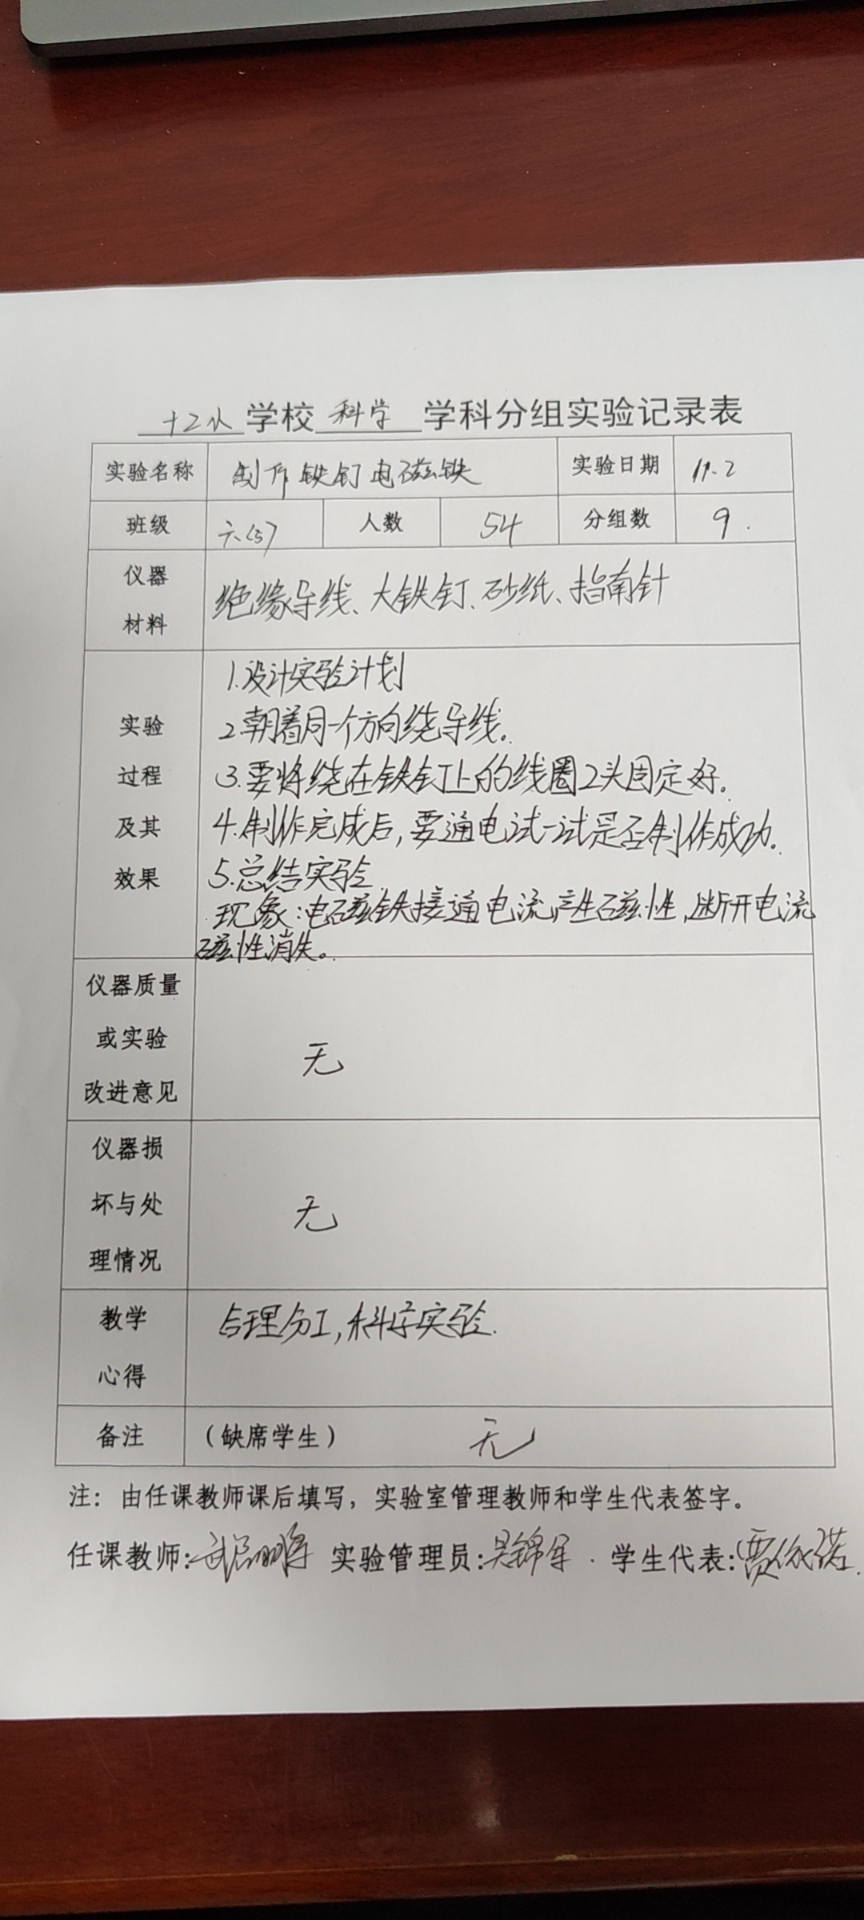 十二小学校 科学 学科分组实验记录表
实验名称 制作铁钉电磁铁 实验日期 11.2
班级 六(5) 人数 54 分组数 9.
仪器材料 绝缘导线、大铁钉、砂纸、指南针
实验过程及其效果
1.设计实验计划
2.朝着同一个方向绕导线。
3.要将绕在铁钉上的线圈2头固定好.
4.制作完成后,要通电试一试是否制作成功.
5.总结实验
现象:电磁铁接通电流产生磁性,断开电流
磁性消失。
仪器质量或实验改进意见 无
仪器损坏与处理情况 无
教学心得 合理分工,科学实验.
备注 (缺席学生) 无
注:由任课教师课后填写,实验室管理教师和学生代表签字。
任课教师: 实验管理员:吴锦军. 学生代表:贾依诺.